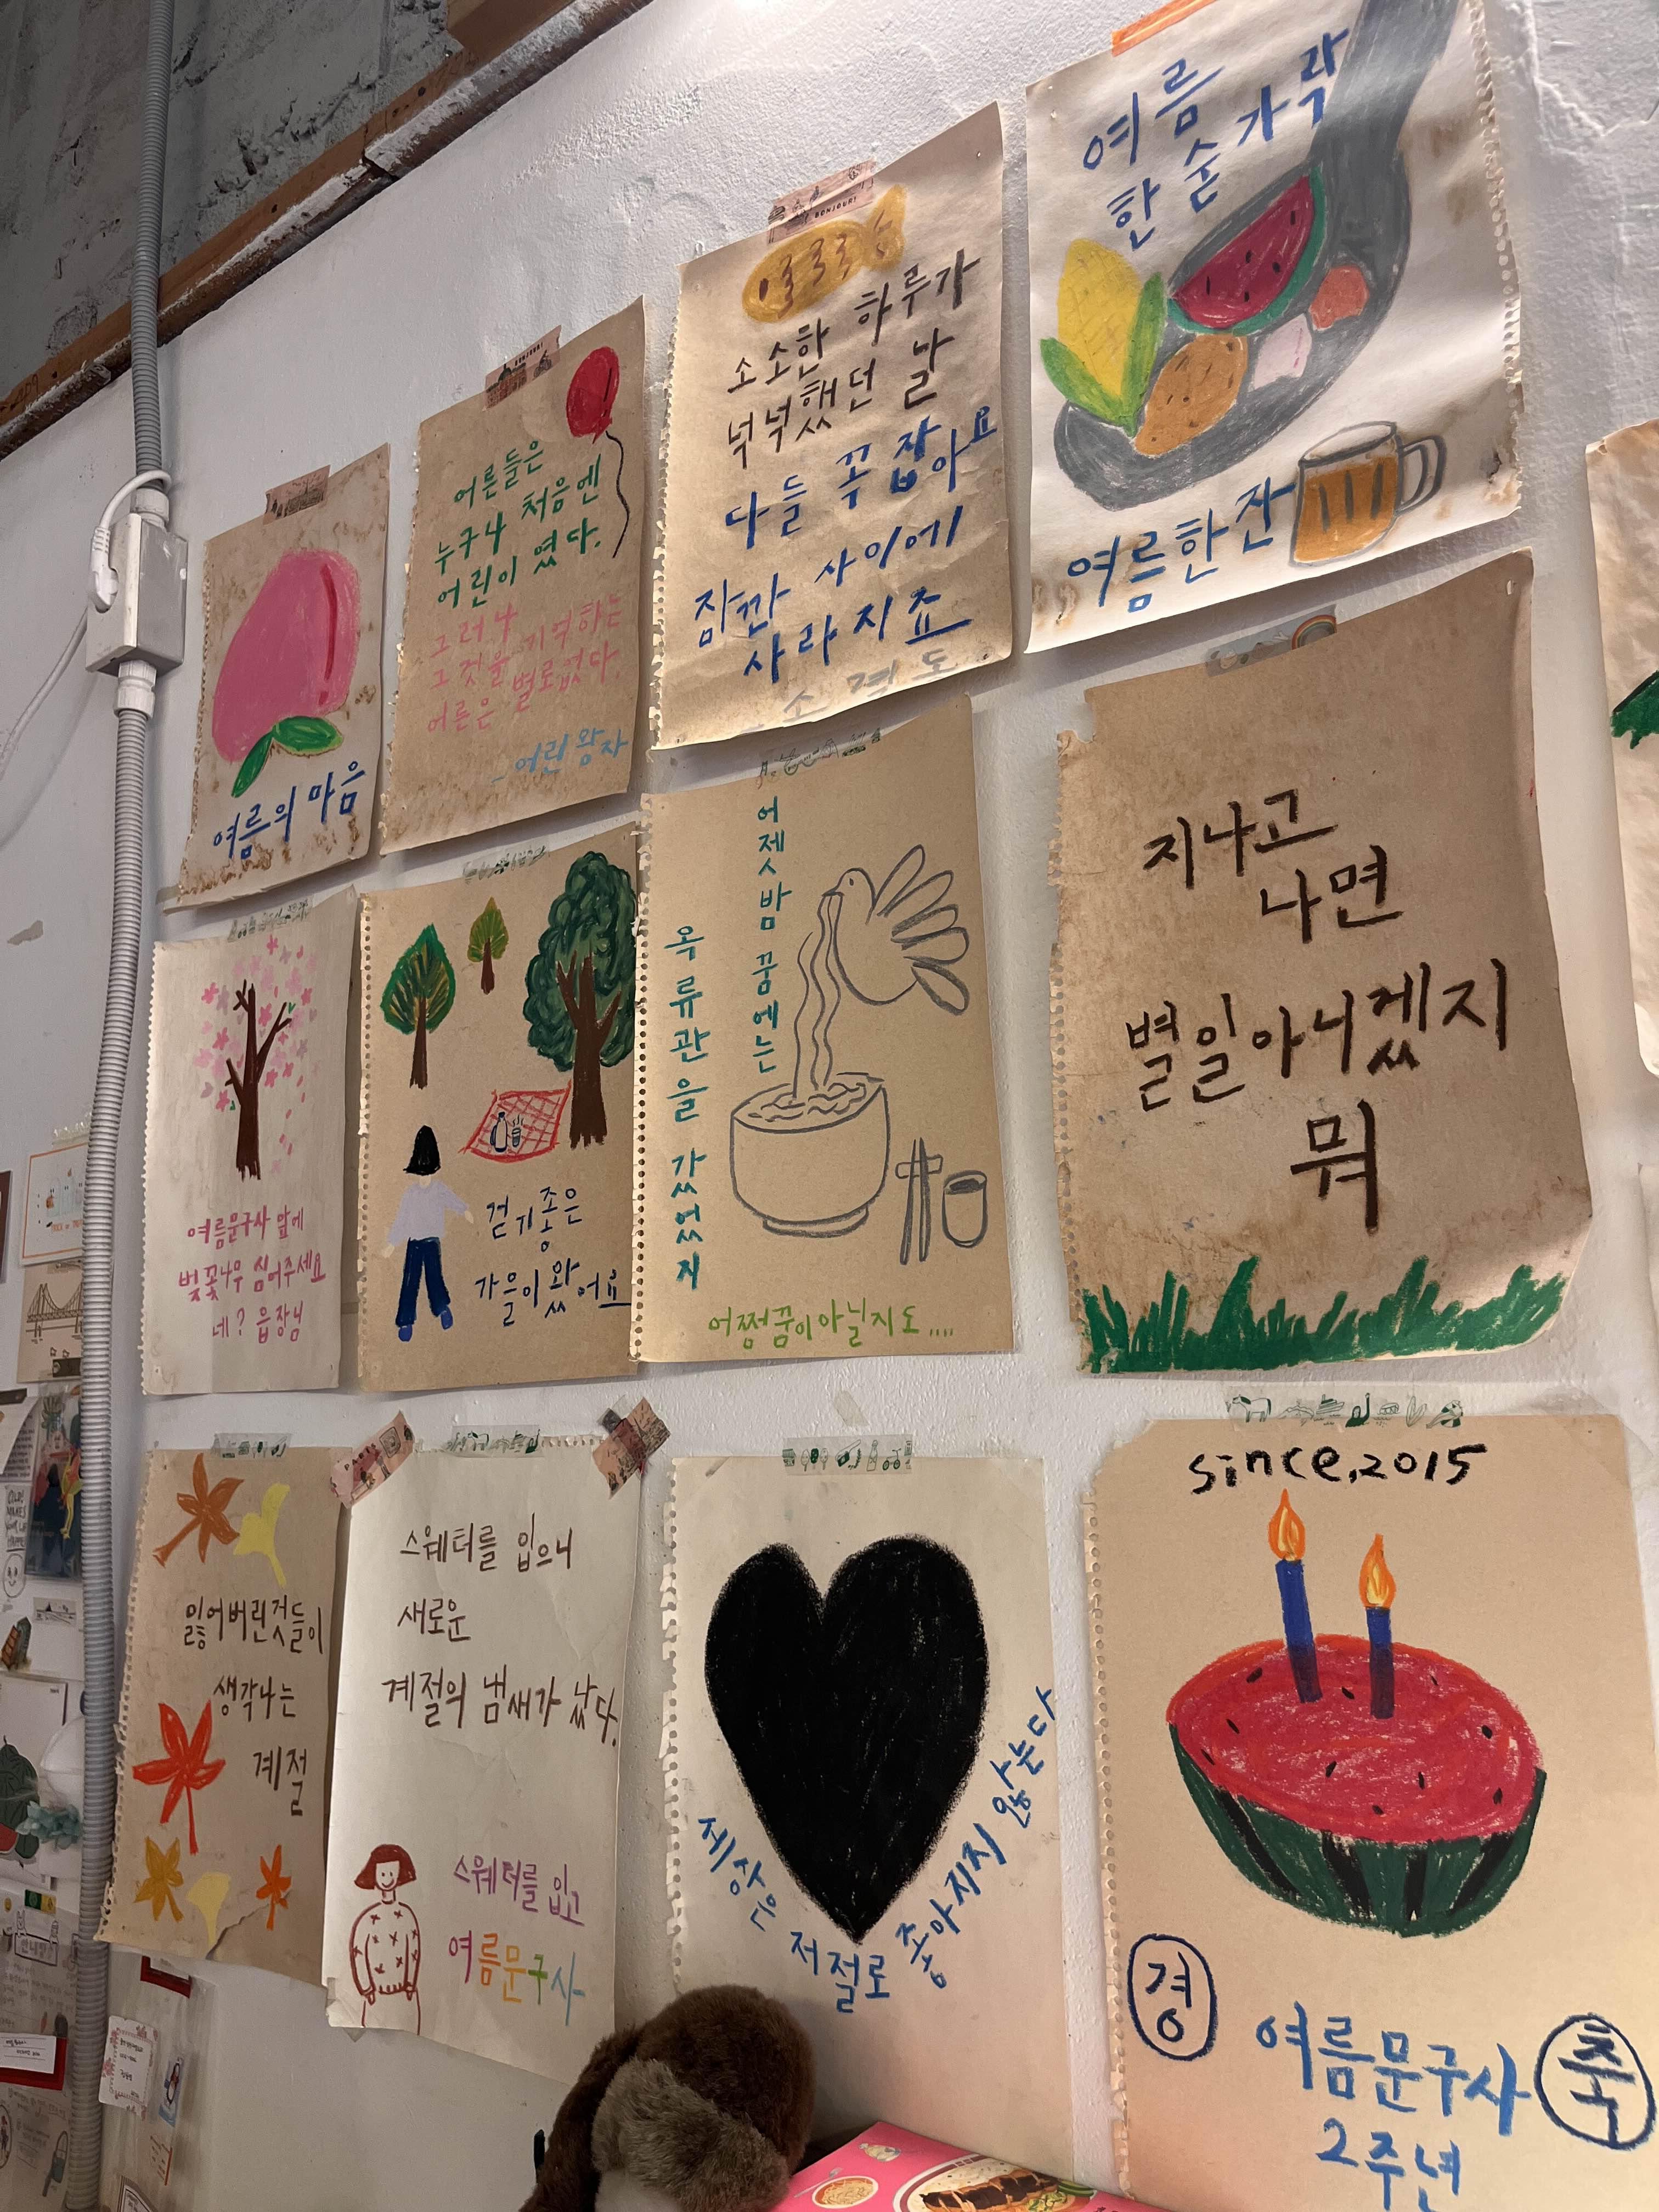 여름의 마음
BONJOUR!
어른들은
누구나 처음엔
어린이 였다.
그러나
그것을 기억하는
어른은 별로없다.
- 어린왕자
BONJOUR!
소소한 하루가
넉넉했던 날
다들 꼭 잡아요
잠깐 사이에
사라지죠
여름
한 숟가락
여름한잔
여름문구사 앞에
벚꽃나무 심어주세요
네? 읍장님
걷기좋은
가을이왔어요
어젯밤 꿈에는
옥류관을 갔었지
어쩜꿈이아닐지도....
지나고
나면
별일아니겠지
뭐
잃어버린것들이
생각나는
계절
PARIS
스웨터를 입으니
새로운
계절의 냄새가 났다.
스웨터를 입고
여름문구사
세상은 저절로 좋아지지 않는다
since.2015
경
축
여름문구사
2주년